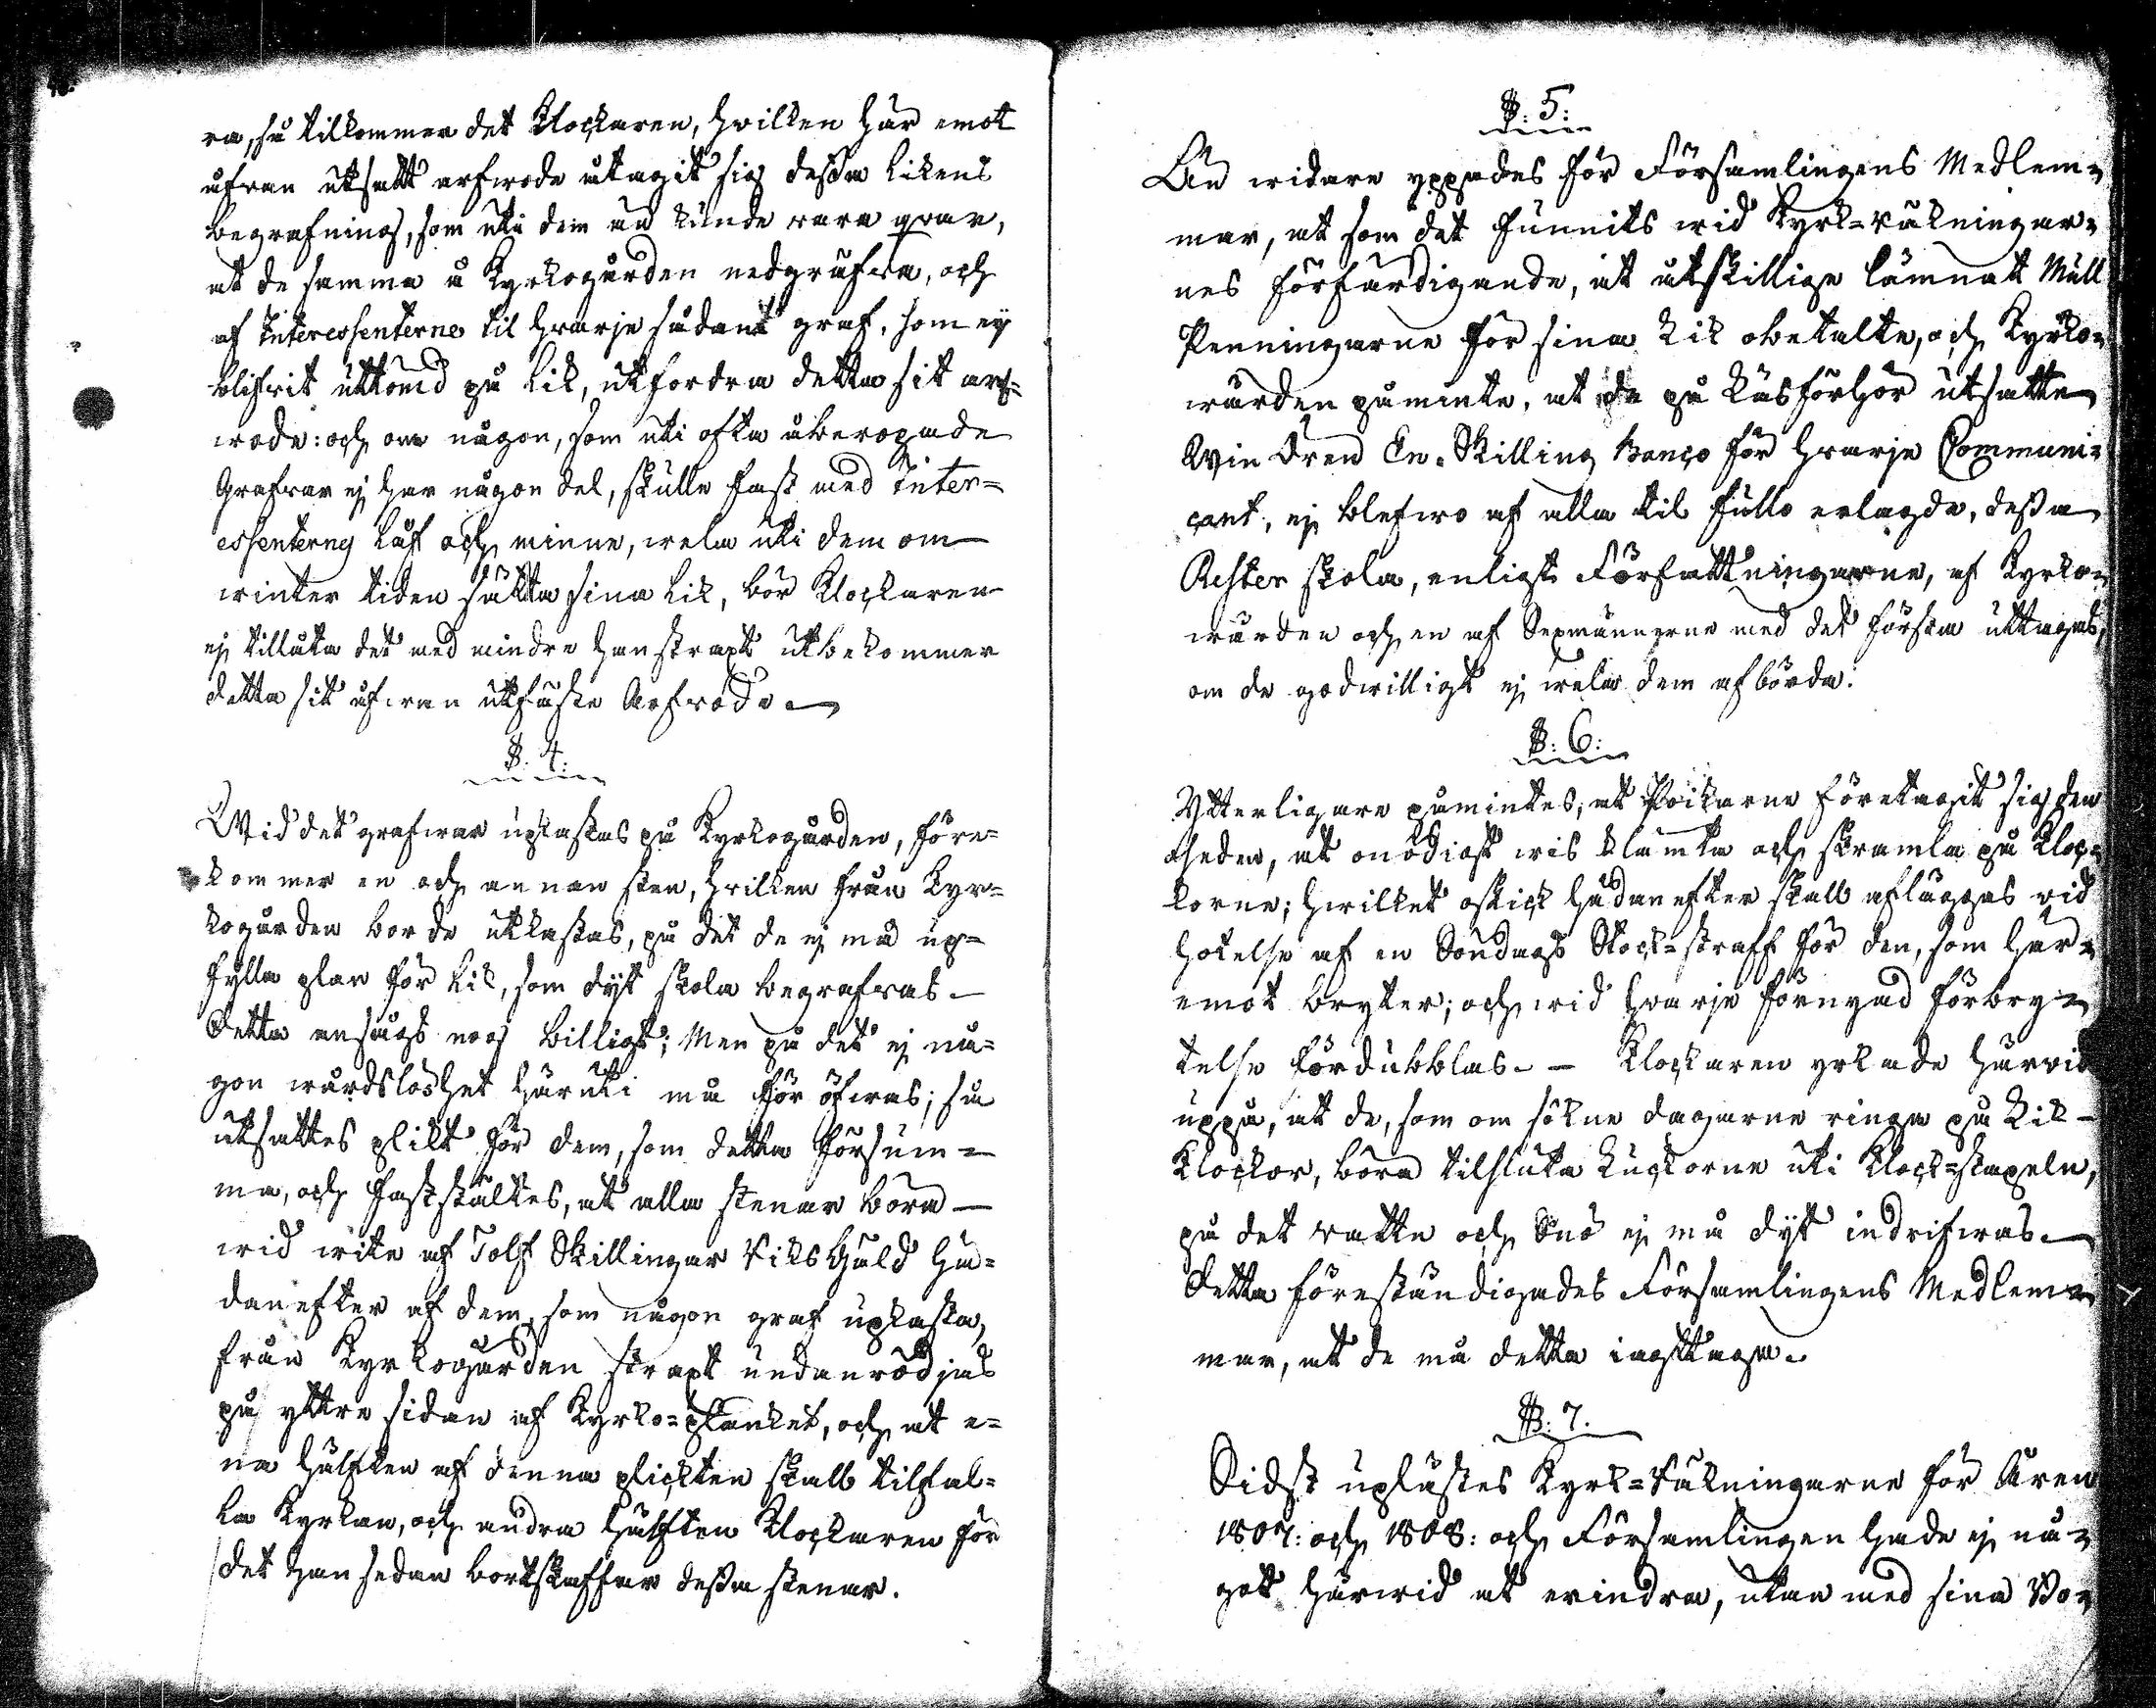 ra, så tilkommer det Klockaren, hvilken här emot
åfvan utsatt arfvode åtagit sig dessa likens
begrafning, som uti dem ej kunde vara qvar,
at de samma å Kyrkogården nedgräfva, och
af Interessenterne til hvarje sådant graf, som ej
blifvit uttömd på lik, utfordra detta sit arf-
vode: och om någon, som uti ofta åberopade
Grafvar ej har någon del, skulle fast med Inter-
essenternes låf och minne, vela uti dem om
winter tiden sätta sina lik, bör Klockaren
ej tillåta det med mindre han straxt utbekommer
detta sit åfvan utfäste Arfvode.
§. 4:
Wid det grafvar upkastas på Kyrkogården, före-
kommer en och annan sten, hvilken från Kyr-
kogården borde utkastas, på det de ej må up-
fylla plan för lik, som dyt skola begrafvas.
Detta ansågs nog billigt; Men på det ej nå-
gon wårdslöshet häruti må för öfvas; så
utsattes plikt för dem, som detta försum-
ma, och fastställtes, at alla stenar böra
wid wite af Tolf Skillingar Riksgäld hä-
danefter af dem, som någon graf upkasta,
från Kyrkogården straxt undanrödjas
på yttre sidan af Kyrko-planket, och at e-
na hälften af denna plickten skall tilfal-
la Kyrkan, och andra hälften Klockaren för
det han sedan bortskaffar dessa stenar.
§. 5:
Än widare yppades för Församlingens Medlem-
mar, at som det funnits wid Kyrk-räkningar-
nes förfärdigande, at åtskillige lämnatt Mull
Penningarne för sina Lik obetalte, och Kyrko-
wärden påminte, at de på Läsförhör utsatte
Win Ören En Skilling Banco för hvarje Communi-
cant, ej blefwo af alla til fullo erlagde, dessa
Rester skola, enligt Författningarne, af Kyrko-
wärden och en af Sexmännerne med det första uttagas,
om de godwilligt ej wela dem afbörda.
§: 6:
Ytterligare påmintes, at Poikarne företagit sig den
oseden, at onödigt wis klämta och skramla på Kloc-
korne; hwilket oskick hädanefter skall afläggas vid
hotelse af en Söndags Stock-straff för den, som här-
emot bryter; och wid hvarje förnyad förbry-
telse fördubblas. - Klockaren yrkade härvid
uppå, at de, som om sökne dagarne ringa på Lik-
Klockor, böra tilsluta Luckorne uti Klock-stapeln,
på det vatten och Snö ej må dyt indrifwas.
Detta föreständigades Församlingens Medlem-
mar, at de må detta iagttaga.
§: 7.
Sidst uplästes Kyrk-Räkningarne för Åren
1807: och 1808: och Församlingen hade ej nå-
got härwid at erindra, utan med sina Bo-